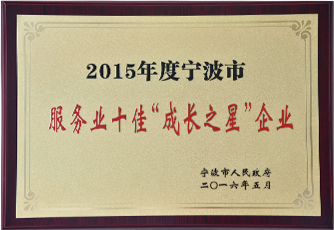 2015年度宁波市
服务业十佳“成长之星”企业
宁波市人民政府
二〇一六年五月